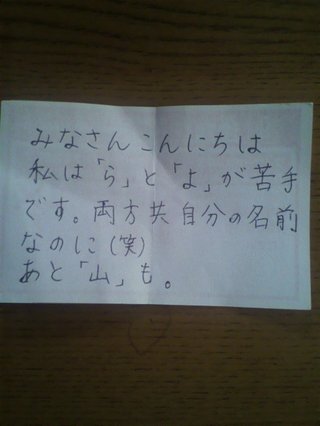 みなさんこんにちは
私は「ら」と「よ」が苦手
です。両方共自分の名前
なのに(笑)
あと「山」も。